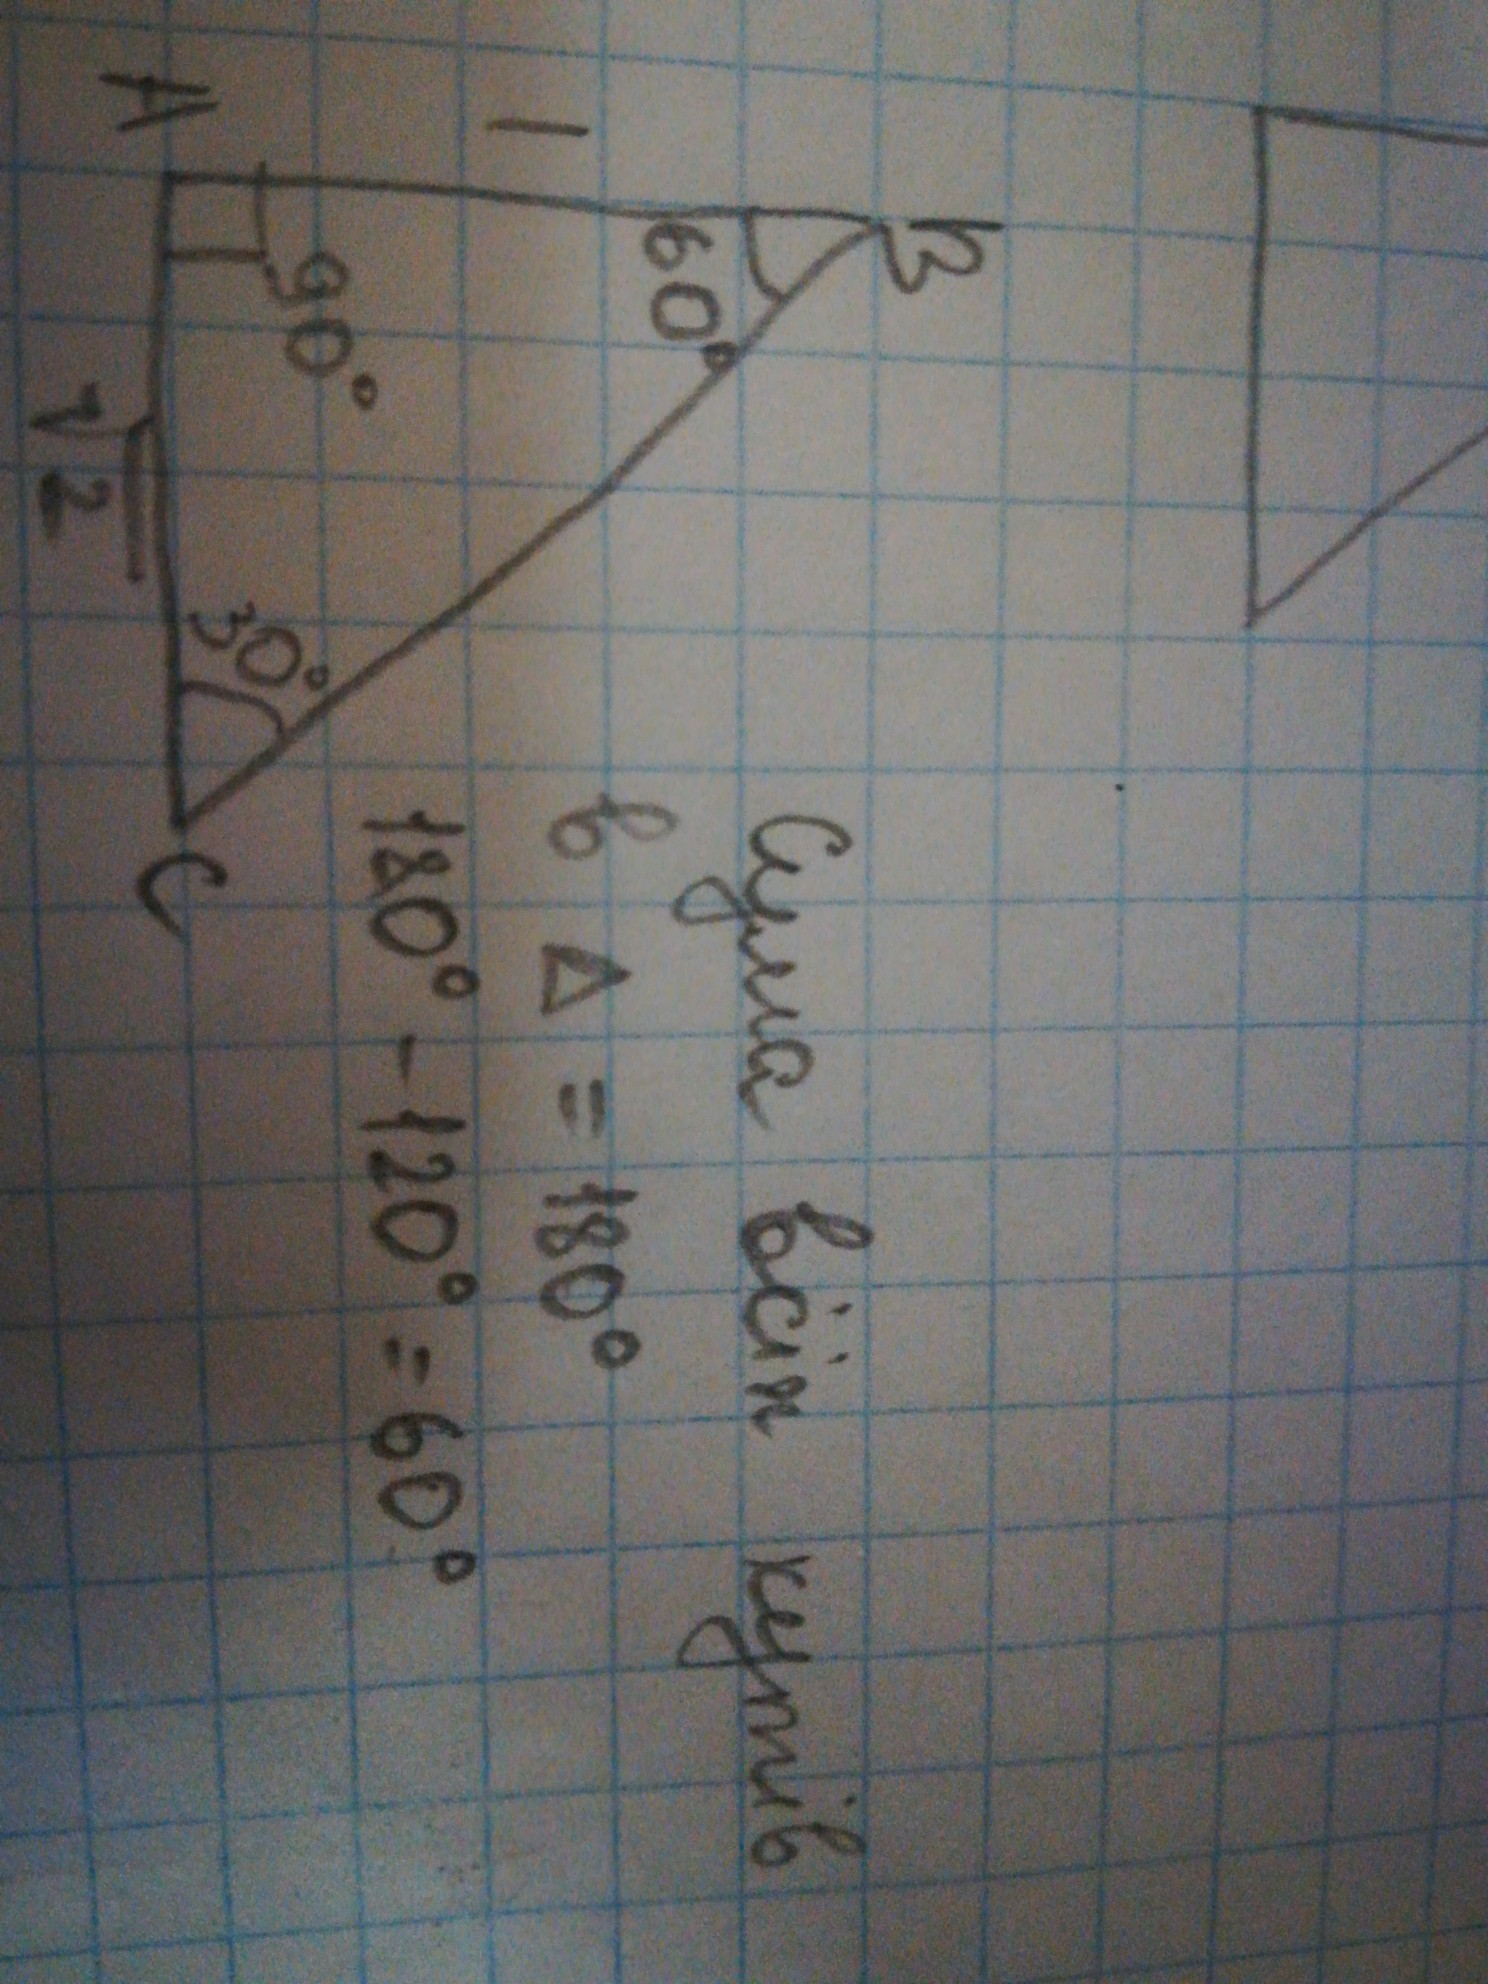 B
60°
1
90°
30°
A
√2
C
Сума всіх кутів
в Δ = 180°
180° - 120° = 60°